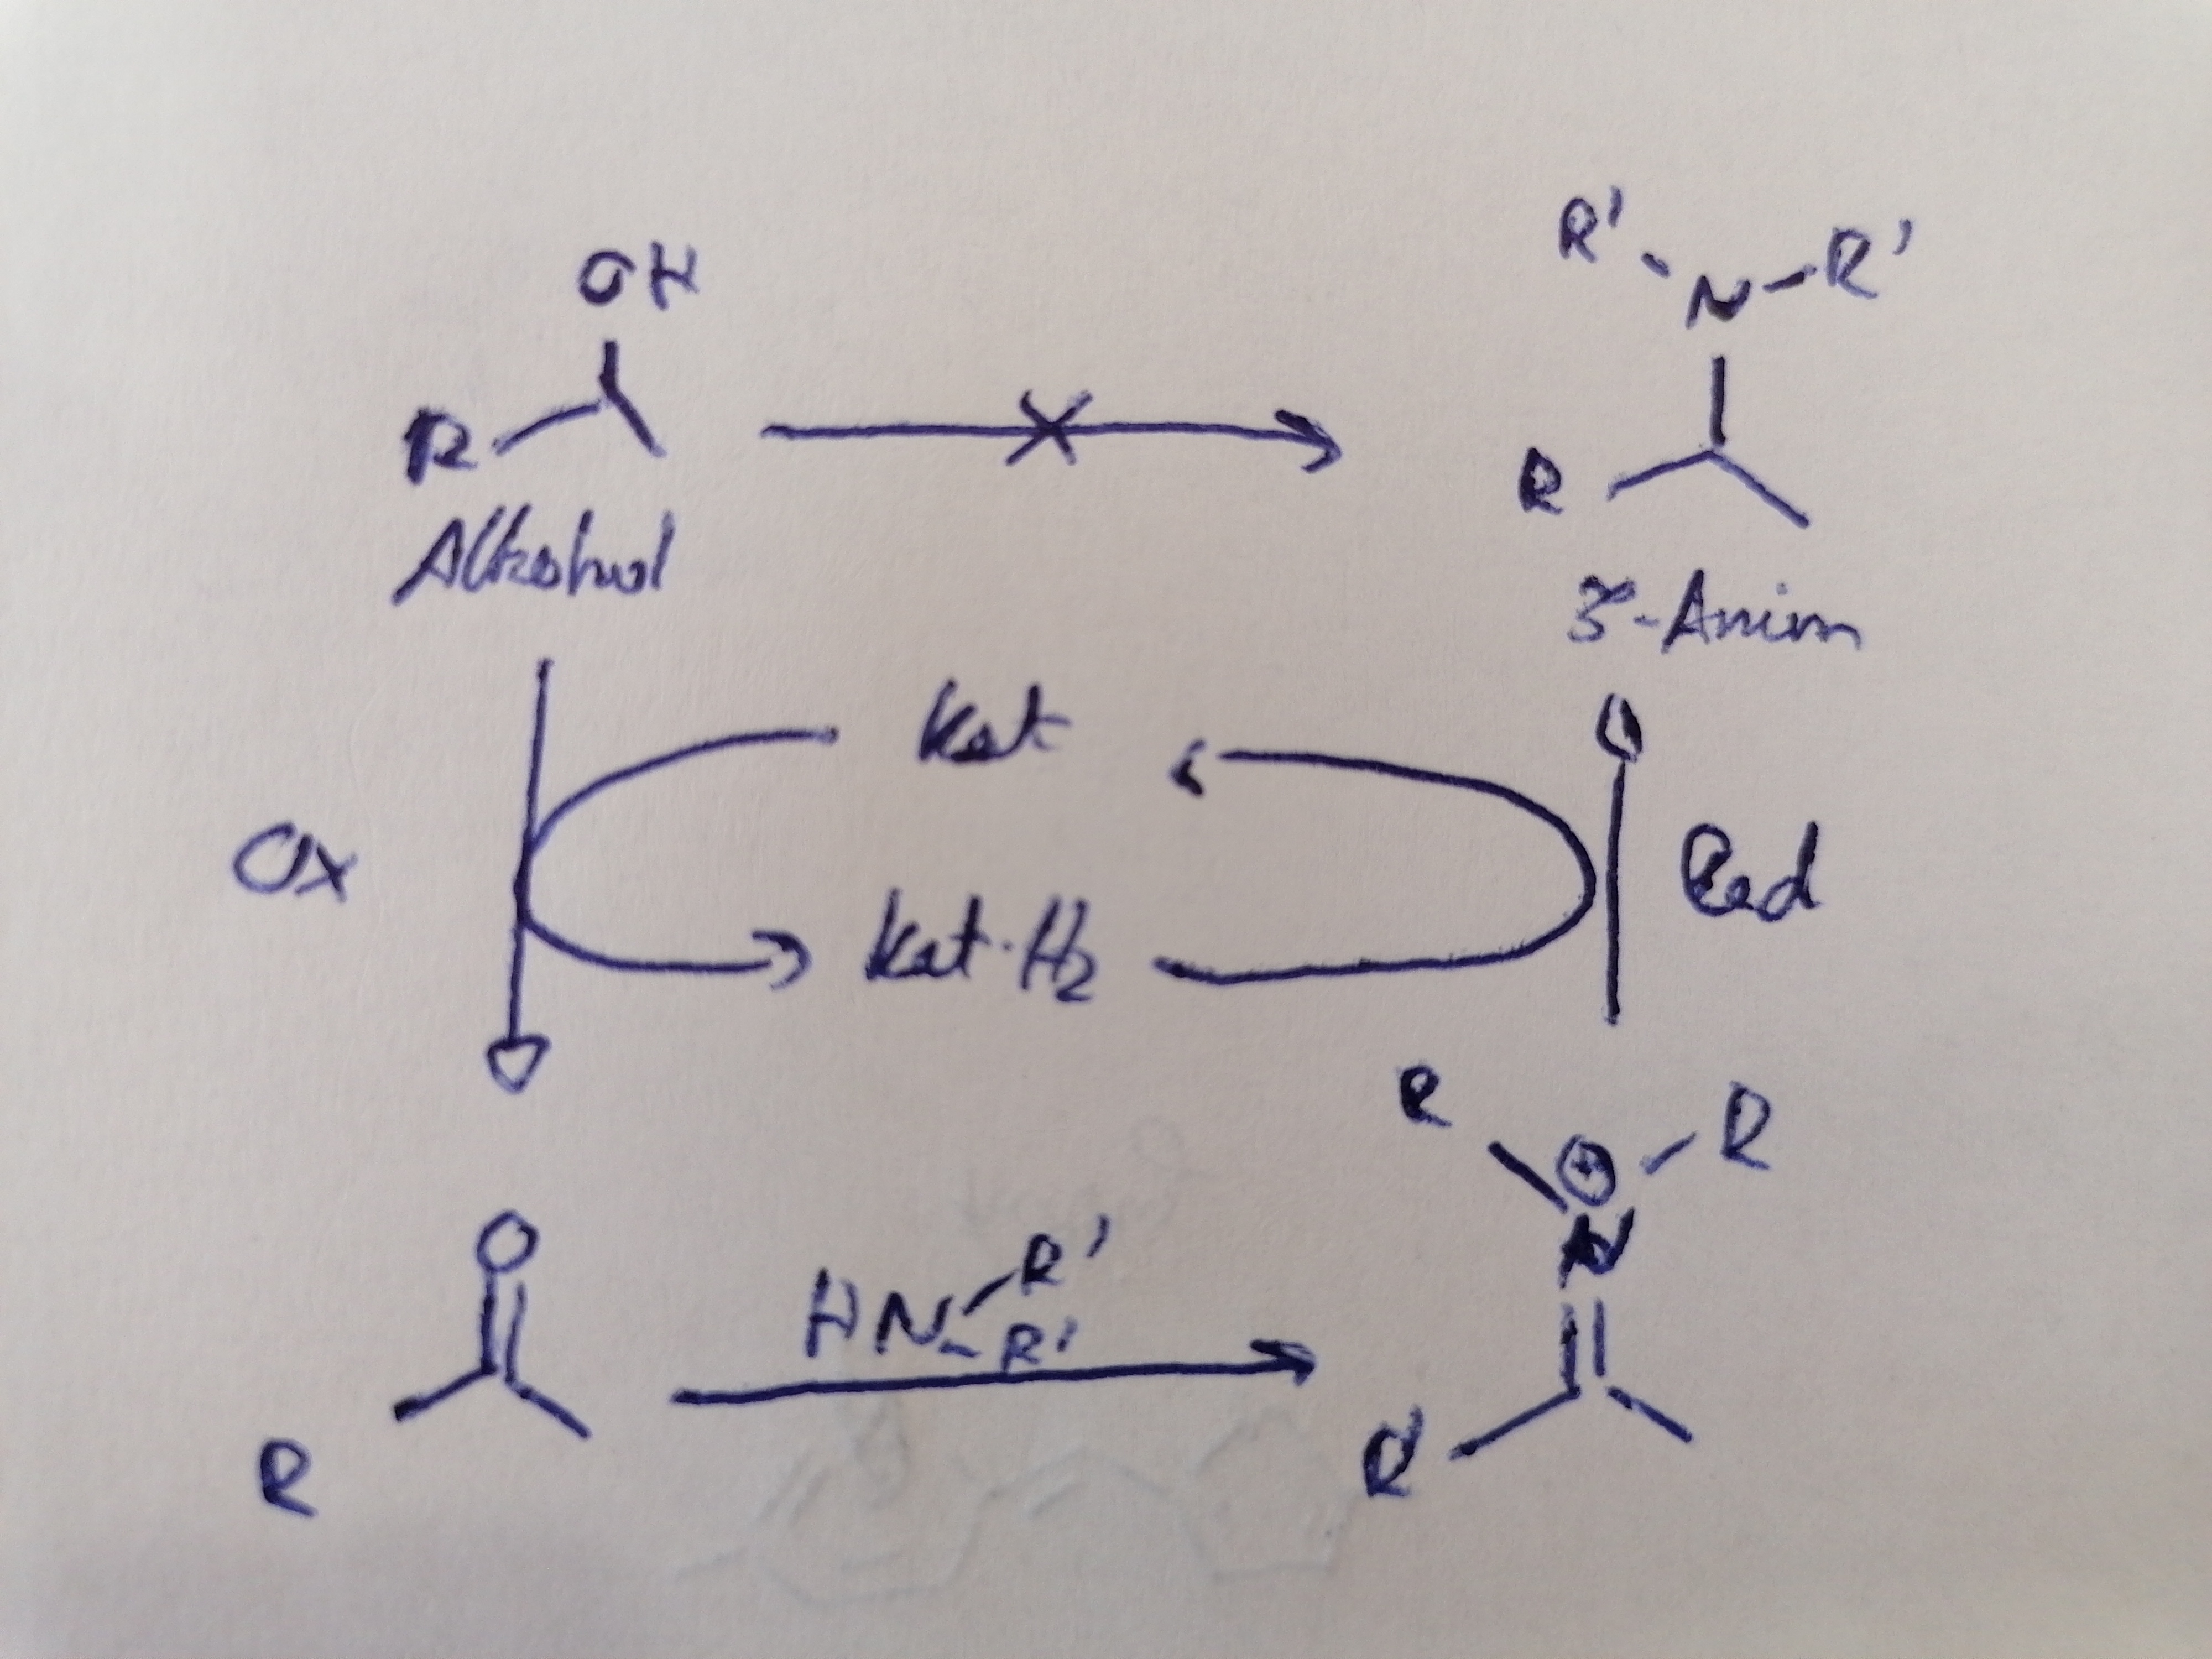 OH
R
Alkohol
R'
N
R'
R
3°-Amin
Ox
Kat
Kat-H2
Red
O
R
HN
R'
R'
R
⊕
R
N
R